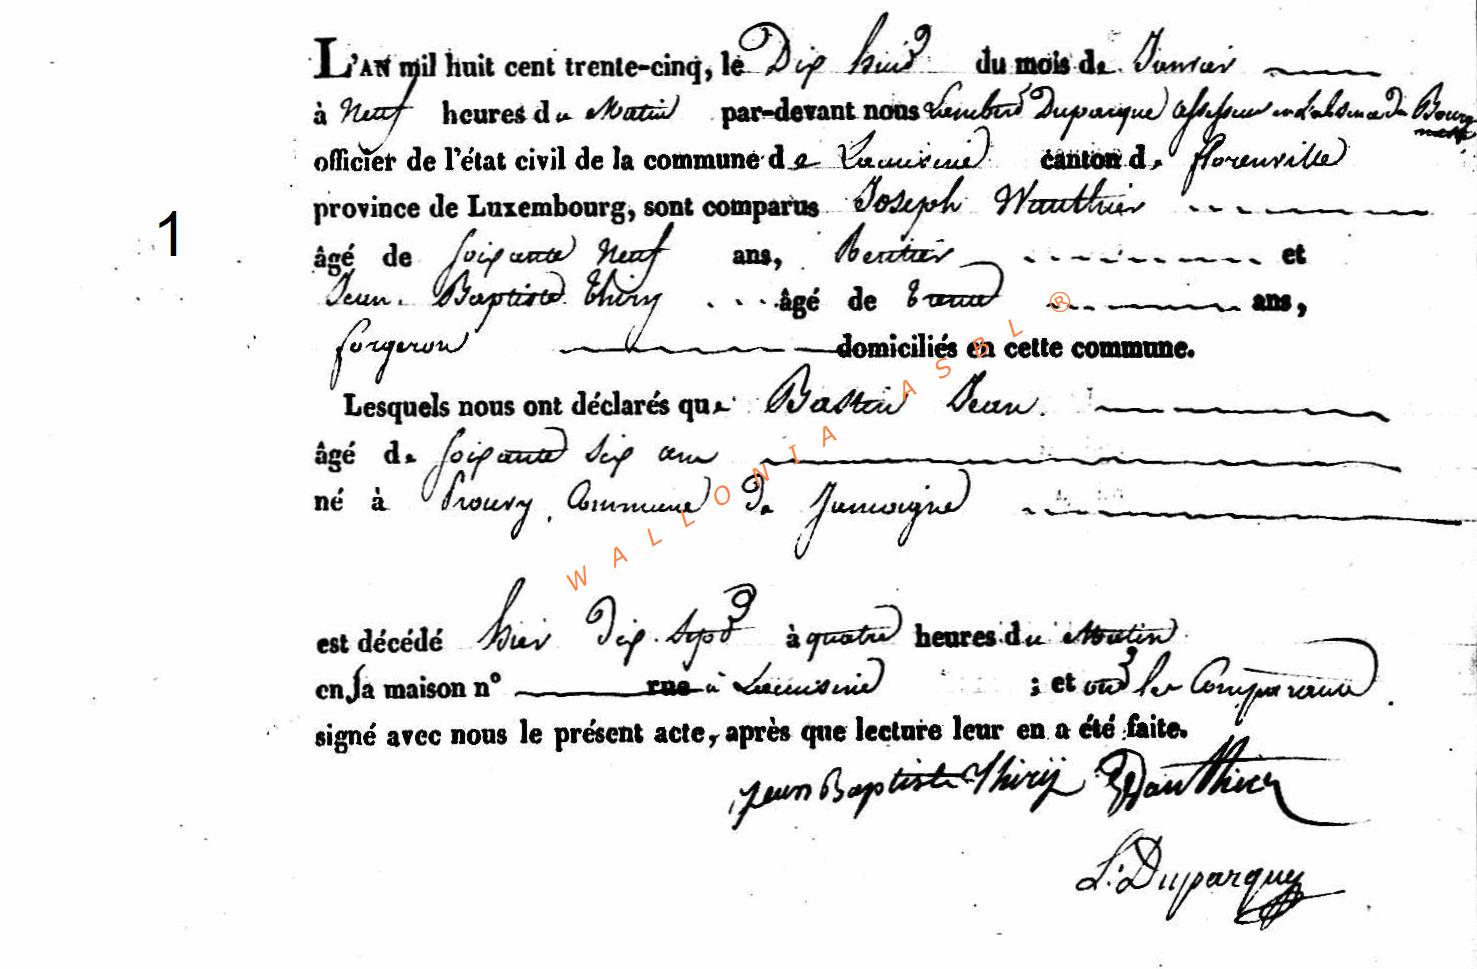 L'AN mil huit cent trente-cinq, le Dix huit du mois de Janvier
à Neuf heures du Matin par-devant nous Lambert Duparque assesseur en l'absence du Bourg
mestre
officier de l'état civil de la commune de Lacuisine canton de florenville
province de Luxembourg, sont comparus Joseph Wauthier
1
âgé de soixante Neuf ans, Rentier et
Jean Baptiste Thiry âgé de trente ans,
forgeron domiciliés en cette commune.
Lesquels nous ont déclarés que Bastin Jean
âgé de soixante six ans
né à Prouvy Commune de Jamoigne
est décédé hier Dix Sept à quatre heures du Matin
en sa maison n° rue à Lacuisine ; et ont les Comparants
signé avec nous le présent acte, après que lecture leur en a été faite.
Jean Baptiste Thirÿ Wauthier
L. Duparque
WALLONIA ASBL ®